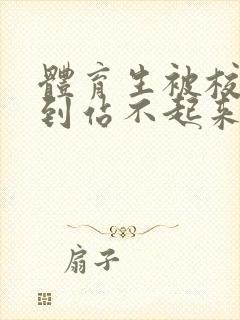 體育生被校
到佔不起来
扇子